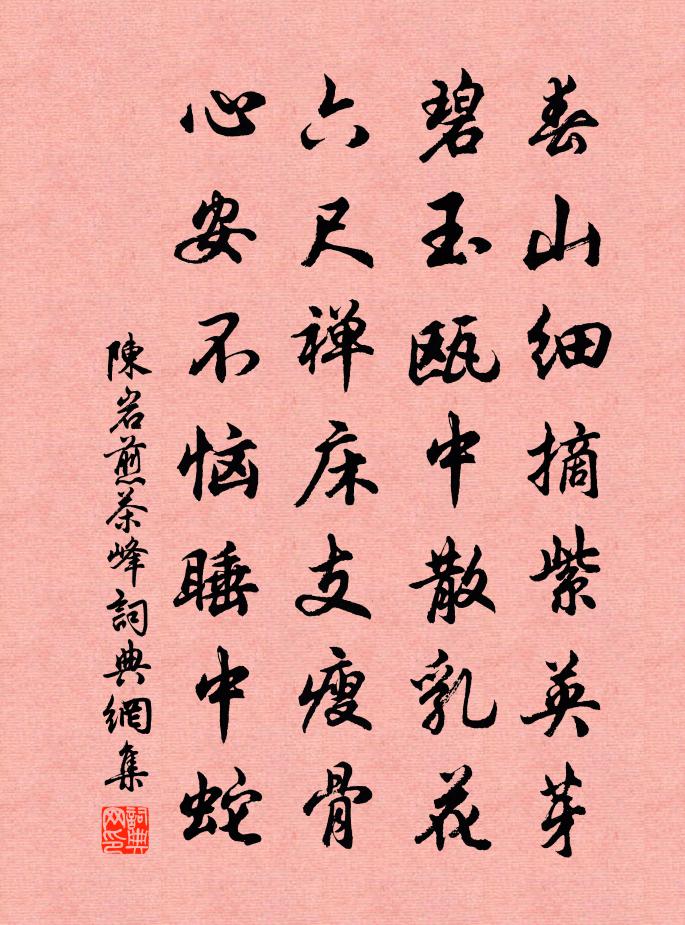 春山细摘紫英芽
碧玉瓯中散乳花
六尺禅床支瘦骨
心安不恼睡中蛇
陳岩煎茶峰詞典網集
詞典网印